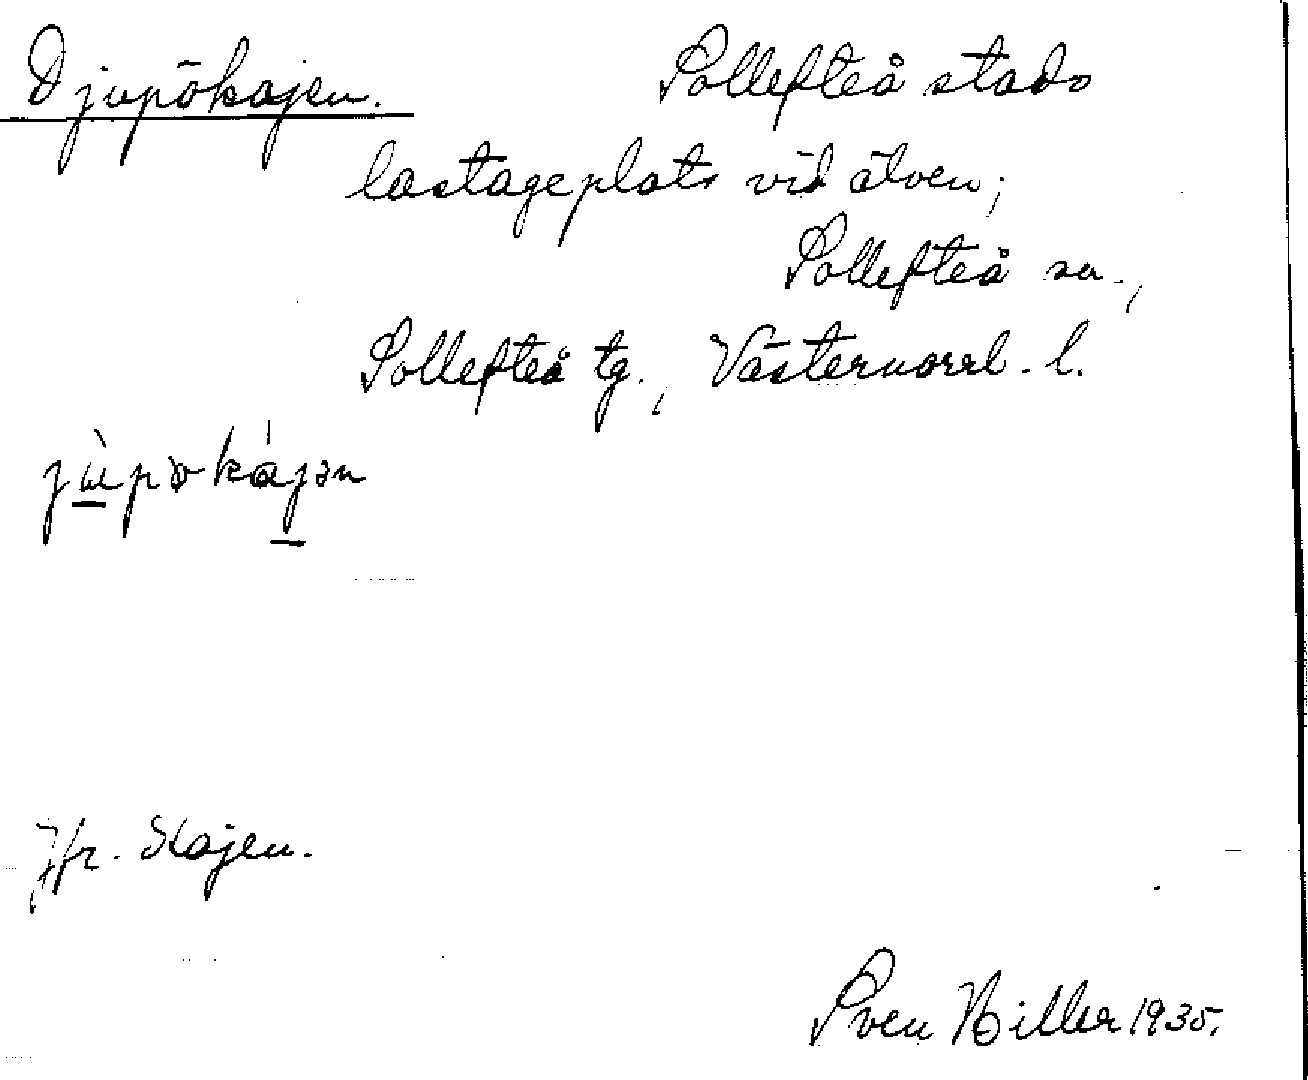 Djupökajen. Sollefteå stads
lastageplats vid älven;
Sollefteå sn.,
Sollefteå tg., Västernorrl. l.
Jfr. Kajen.
Sven Hiller 1935.